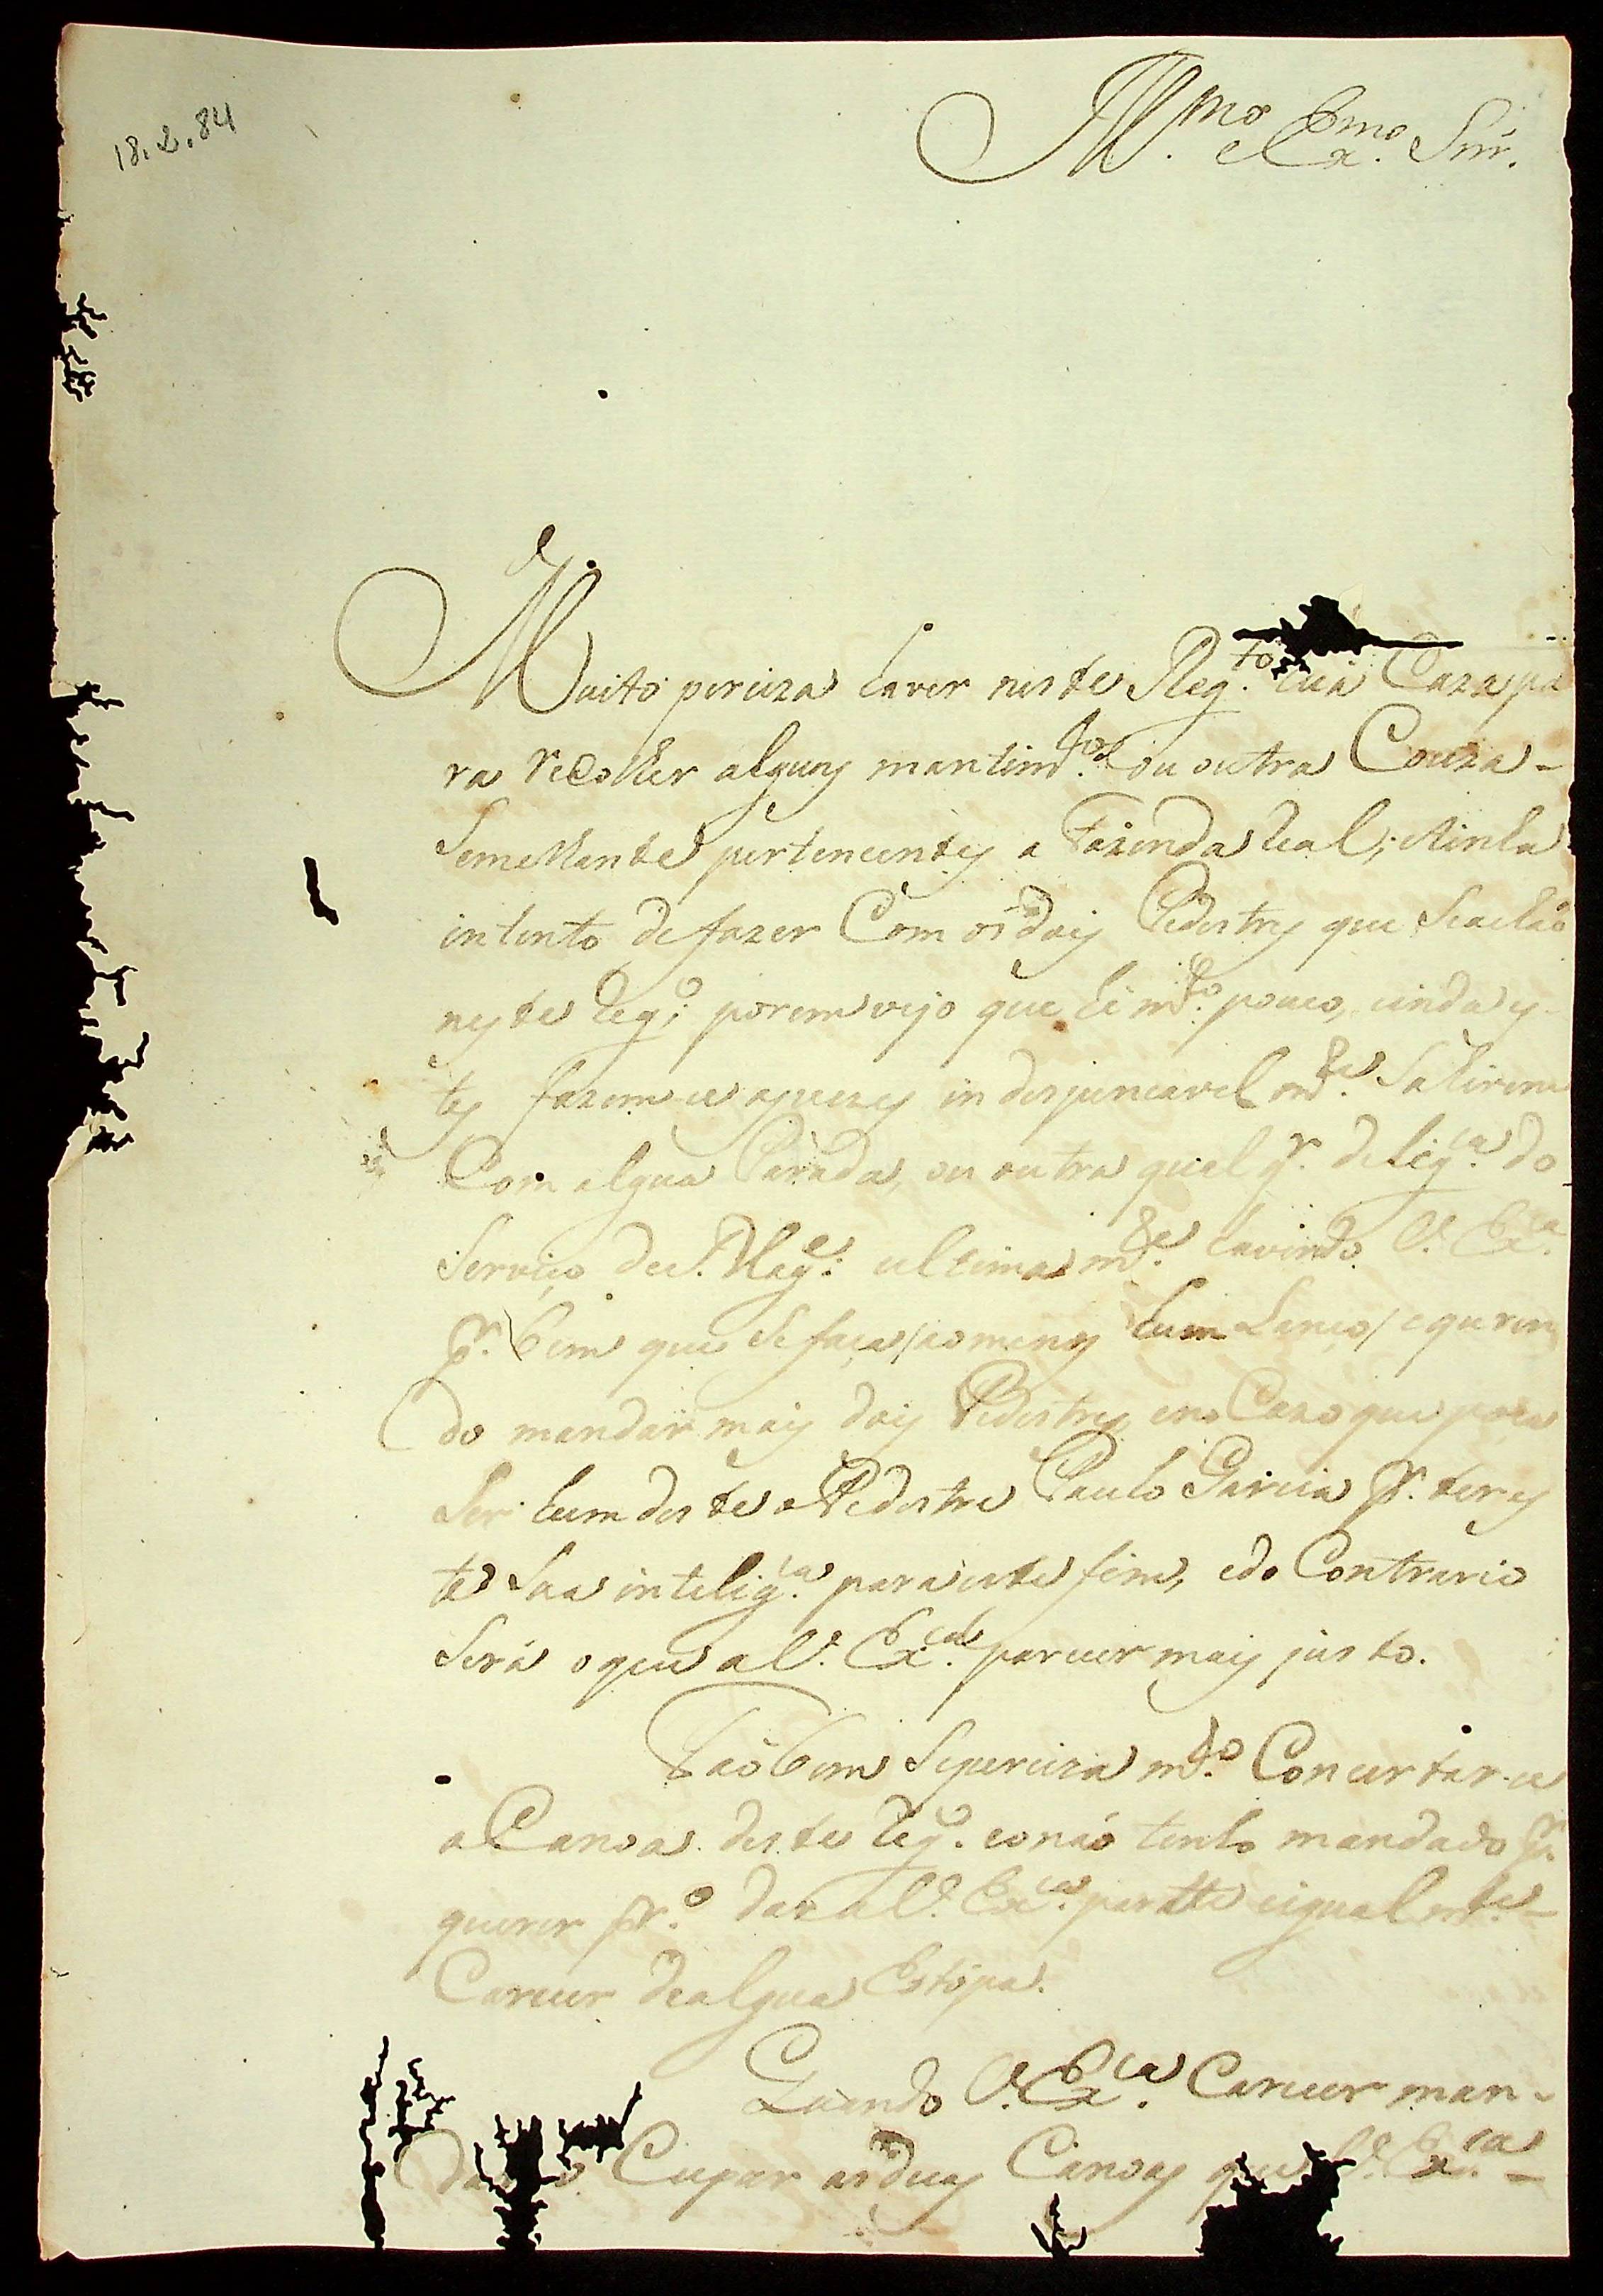 18.2.84
Ill.mo e Ex.mo Snr.
Muito perciza haver neste Reg.to Caza pa
ra recolher alguns mantim.tos ou outra Couza -
Semelhante pertencentes a Fazenda Real; e tinha
intento de fazer Com os dois Pedestres que Se achaõ
neste Reg.o; porem vejo que hé m.to pouco, e inda es-
tes fazem ce apreces indespencavel m.te Sahirem
Com algua Parada, ou outra qual q.r delig.ca do
Serviço de S. Mag.e: ultima m.te havendo V. Ex.ca
p.r bem que Se faça /ao menos hum Lanco/ e queren
do mandar mais dois Pedestres, e no Cazo que poça
Ser hum deste o Pedestre Paulo Garcia p.r ter es
te Sua intelig.ca para este fim, e do Contrario
Será o que a V. Ex.ca parecer mais justo.
Taõ bem Se perciza m.to Concertar-ce
a Canoa deste Reg.o e o naõ tenho mandado p.r
querer pr.o dar a V. Ex.ca parte e igual m.te -
Carecer de algua Estopa.
Quando V. Ex.ca Carecer man-
Cupar as duas Canoas que V. Ex.ca -